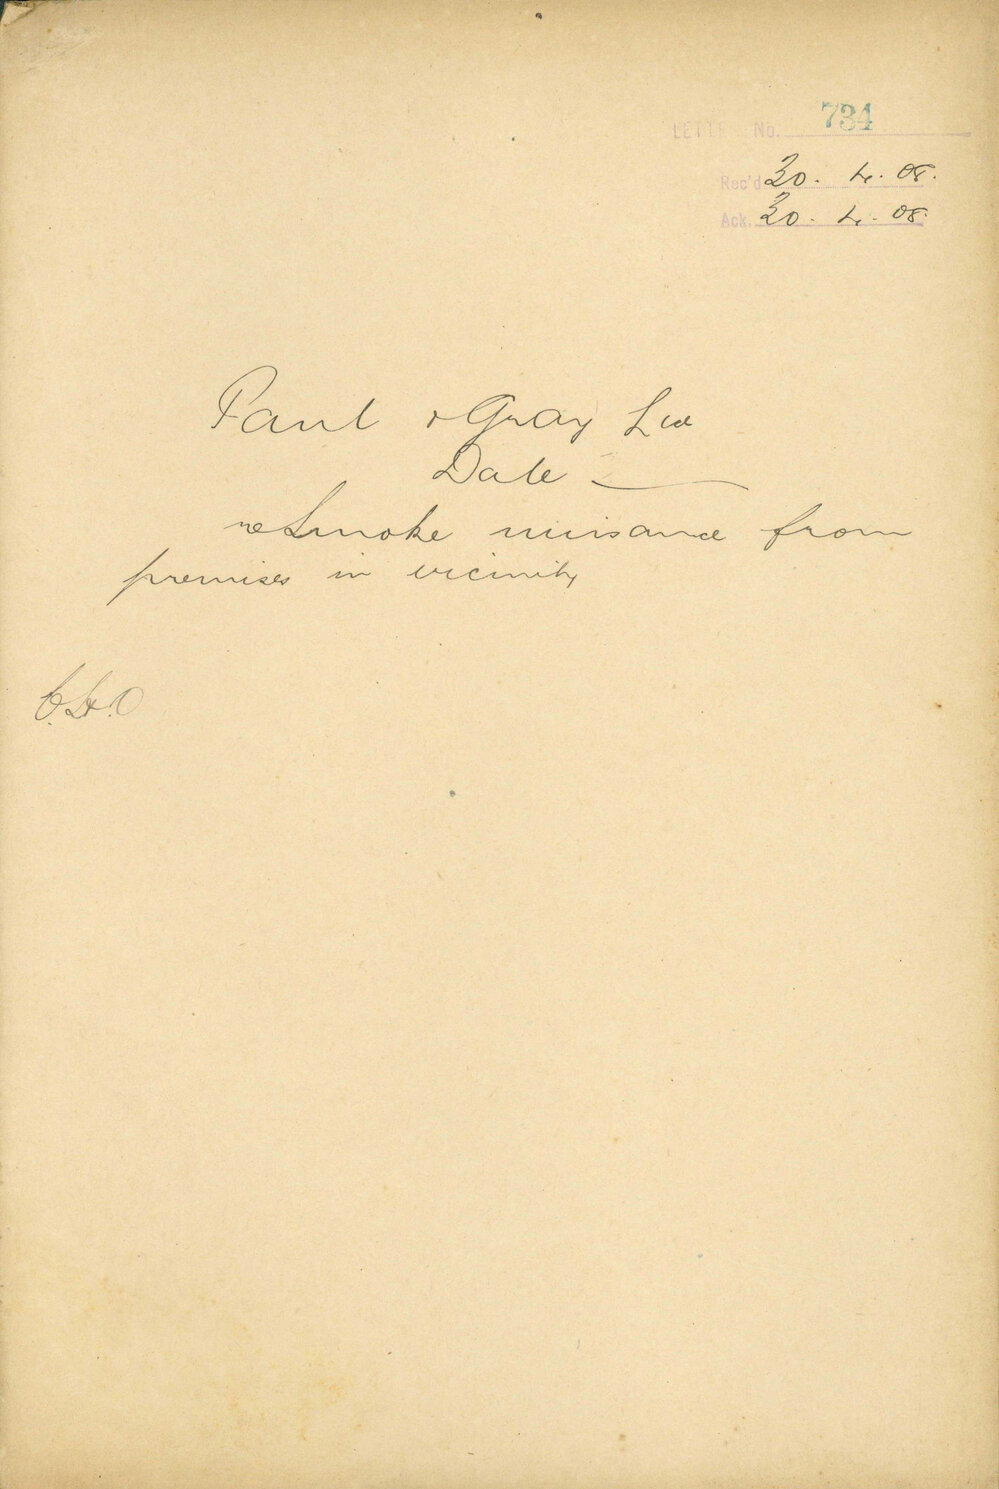 LETTER No. 734
Rec'd 30. 4. 08.
Ack. 30. 4. 08.
Paul & Gray Ltd
Date —
re Smoke nuisance from
premises in vicinity